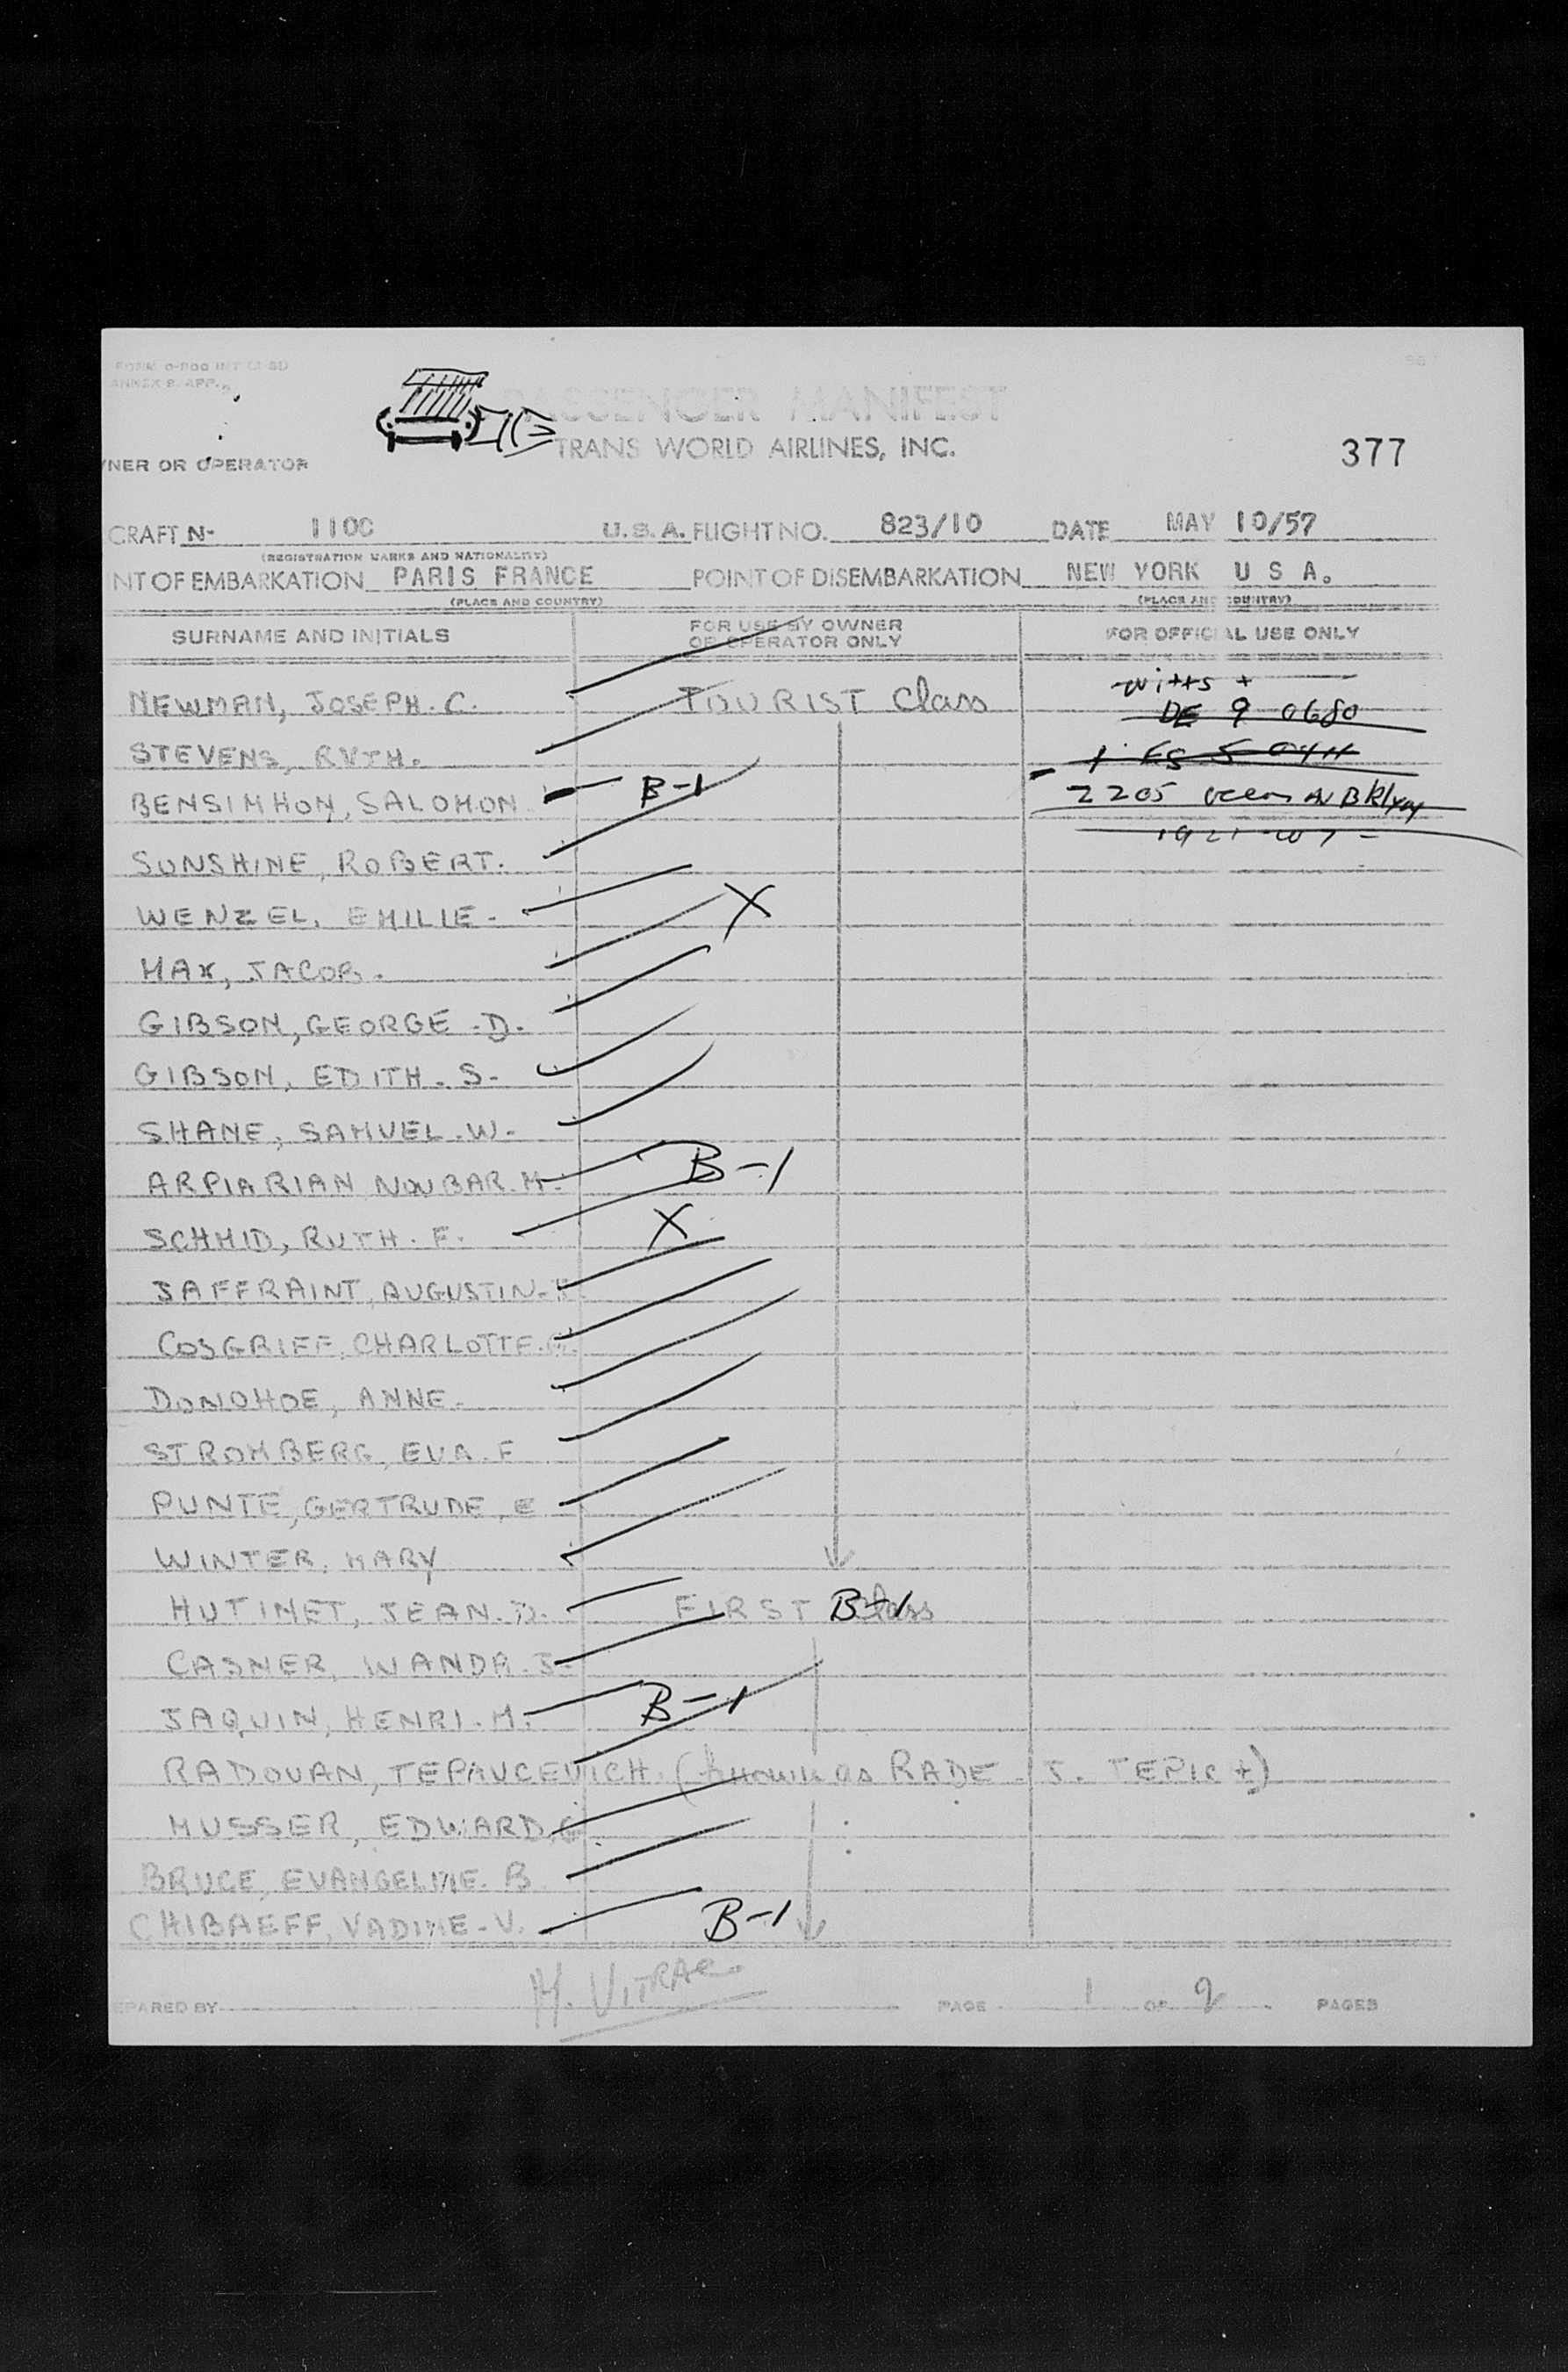 PASSENGER MANIFEST
TRANS WORLD AIRLINES, INC.
377
NER OR OPERATOR
CRAFT N- 1100 U.S.A. FLIGHT NO. 823/10 DATE MAY 10/57
(REGISTRATION MARKS AND NATIONALITY)
NT OF EMBARKATION PARIS FRANCE POINT OF DISEMBARKATION NEW YORK U S A.
(PLACE AND COUNTRY) (PLACE AND COUNTRY)
SURNAME AND INITIALS FOR USE BY OWNER OR OPERATOR ONLY FOR OFFICIAL USE ONLY
NEWMAN, JOSEPH. C. TOURIST Class
DE 9 0680
STEVENS, RUTH.
BENSIMHON, SALOMON B-1 2205 Ocean AV BKlyn
SUNSHINE, ROBERT.
WENZEL, EMILIE- X
MAX, JACOB.
GIBSON, GEORGE -D.
GIBSON, EDITH. S-
SHANE, SAMUEL. W-
ARPIARIAN NOUBAR. M- B-1
SCHMID, RUTH. F. X
JAFFRAINT, AUGUSTIN-
COSGRIFF, CHARLOTTE.
DONOHOE, ANNE-
STROMBERG, EVA. F
PUNTE, GERTRUDE, E
WINTER, MARY
HUTINET, JEAN. D. FIRST Class B-1
CASNER, WANDA. J-
JAQUIN, HENRI. M. B-1
RADOVAN, (known as RADE J. TEPIC +)
MUSSER, EDWARD.
BRUCE, EVANGELINE. B.
CHIBAEFF, VADIME-V. B-1
EPARED BY H. VITRAC. PAGE 1 OF 2 PAGES